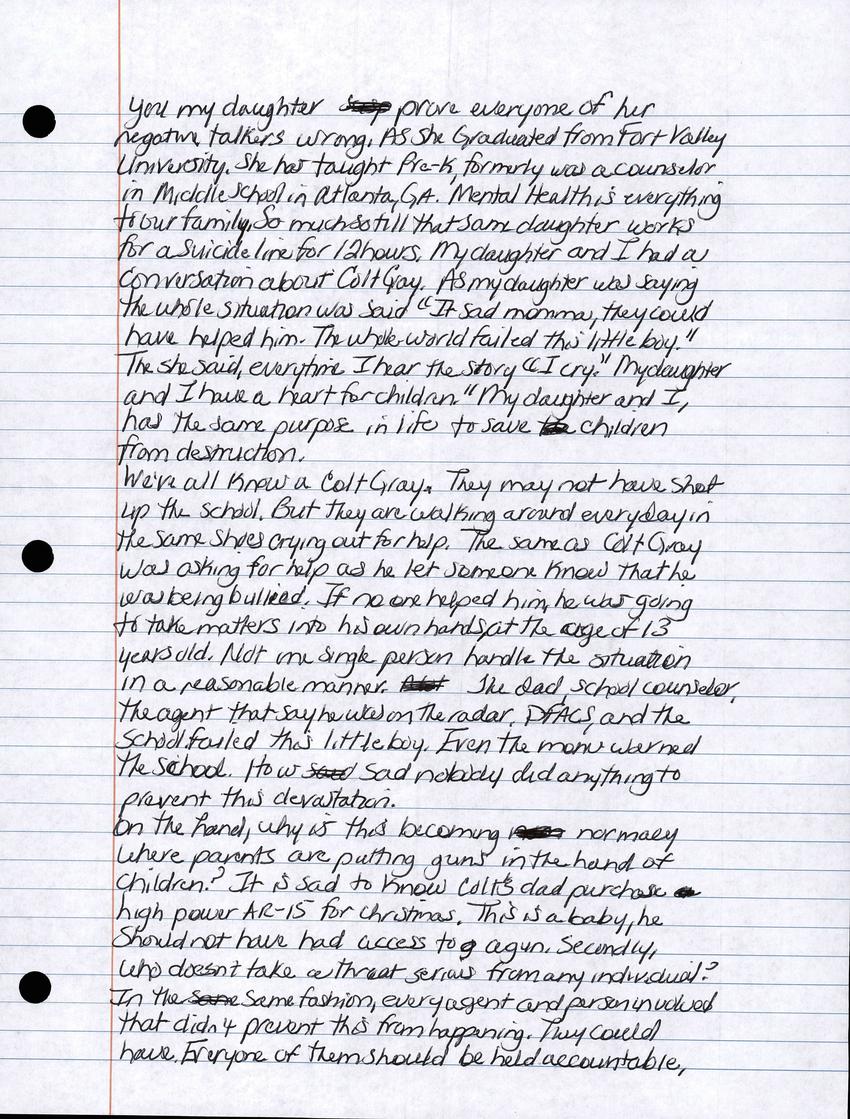 you my daughter prove everyone of her
negative talkers wrong. As she Graduated from Fort Valley
University. She has taught Pre-K, formerly was a counselor
in Middle school in Atlanta, GA. Mental Health is everything
to our family. So much so till that same daughter works
for a suicide line for 12 hours. My daughter and I had a
conversation about Colt Gray. As my daughter was saying
the whole situation was said "It sad momma, they could
have helped him. The whole world failed this little boy."
The she said, everytime I hear the story "I cry." My daughter
and I have a heart for children." My daughter and I,
has the same purpose in life to save children
from destruction.
We've all know a Colt Gray. They may not have shot
up the school. But they are walking around everyday in
the same shoes crying out for help. The same as Colt Gray
was asking for help as he let someone know that he
was being bullied. If no one helped him, he was going
to take matters into his own hands at the age of 13
years old. Not one single person handle the situation
in a reasonable manner. The dad, school counselor,
the agent that say he was on the radar, DFACS, and the
school failed this little boy. Even the mom warned
the school. How sad nobody did anything to
prevent this devastation.
On the hand, why is this becoming normacy
where parents are putting guns in the hand of
children.? It is sad to know Colt's dad purchase
high power AR-15 for christmas. This is a baby, he
should not have had access to a gun. Secondly,
who doesn't take a threat serious from any individual?
In the same fashion, every agent and person involved
that didn't prevent this from happening. They could
have. Everyone of them should be held accountable,